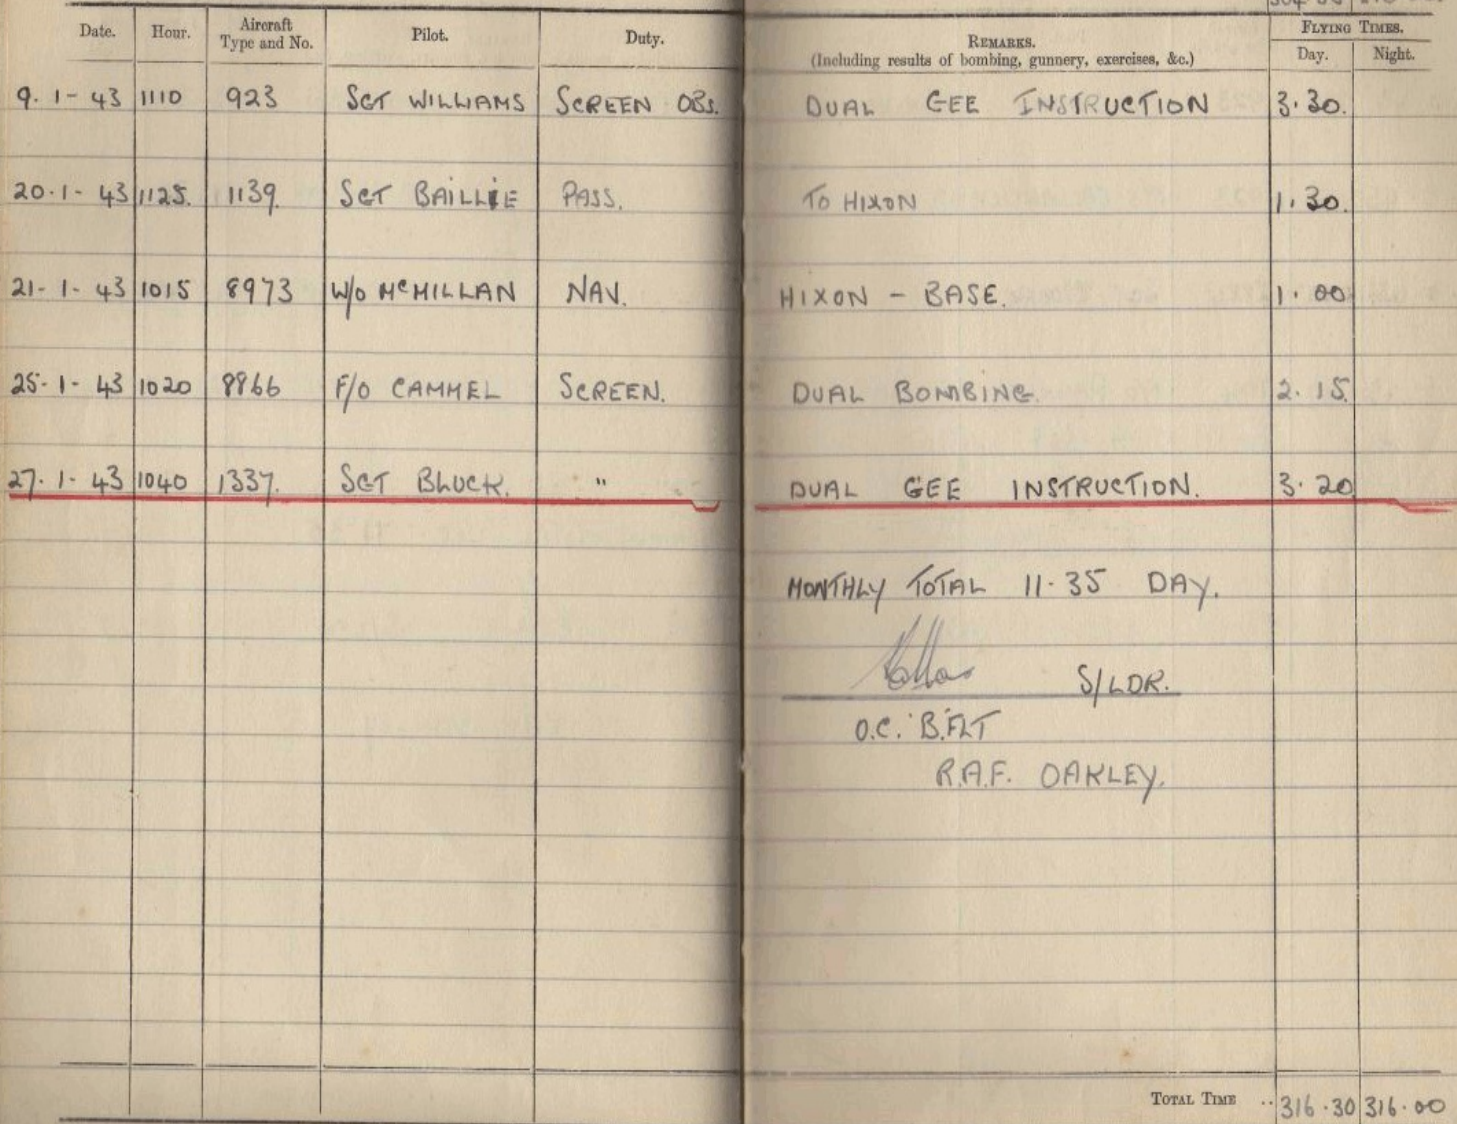 Date. Hour. Aircraft Type and No. Pilot. Duty. REMARKS. (Including results of bombing, gunnery, exercises, &c.) FLYING TIMES. Day. Night.
9. 1- 43 1110 923 SGT WILLIAMS SCREEN OBS. DUAL GEE INSTRUCTION 3.30.
20.1- 43 1125. 1139. SGT BAILLIE PASS. TO HIXON 1.30.
21- 1- 43 1015 8973 W/O McMILLAN NAV. HIXON - BASE. 1.00
25- 1- 43 1020 8866 F/O CAMMEL SCREEN. DUAL BOMBING. 2.15.
27. 1- 43 1040 1337. SGT BLUCK. " DUAL GEE INSTRUCTION. 3.20
MONTHLY TOTAL 11.35 DAY.
S/LDR.
O.C. 'B'.FLT
R.A.F. OAKLEY.
TOTAL TIME .. 316.30 316.00